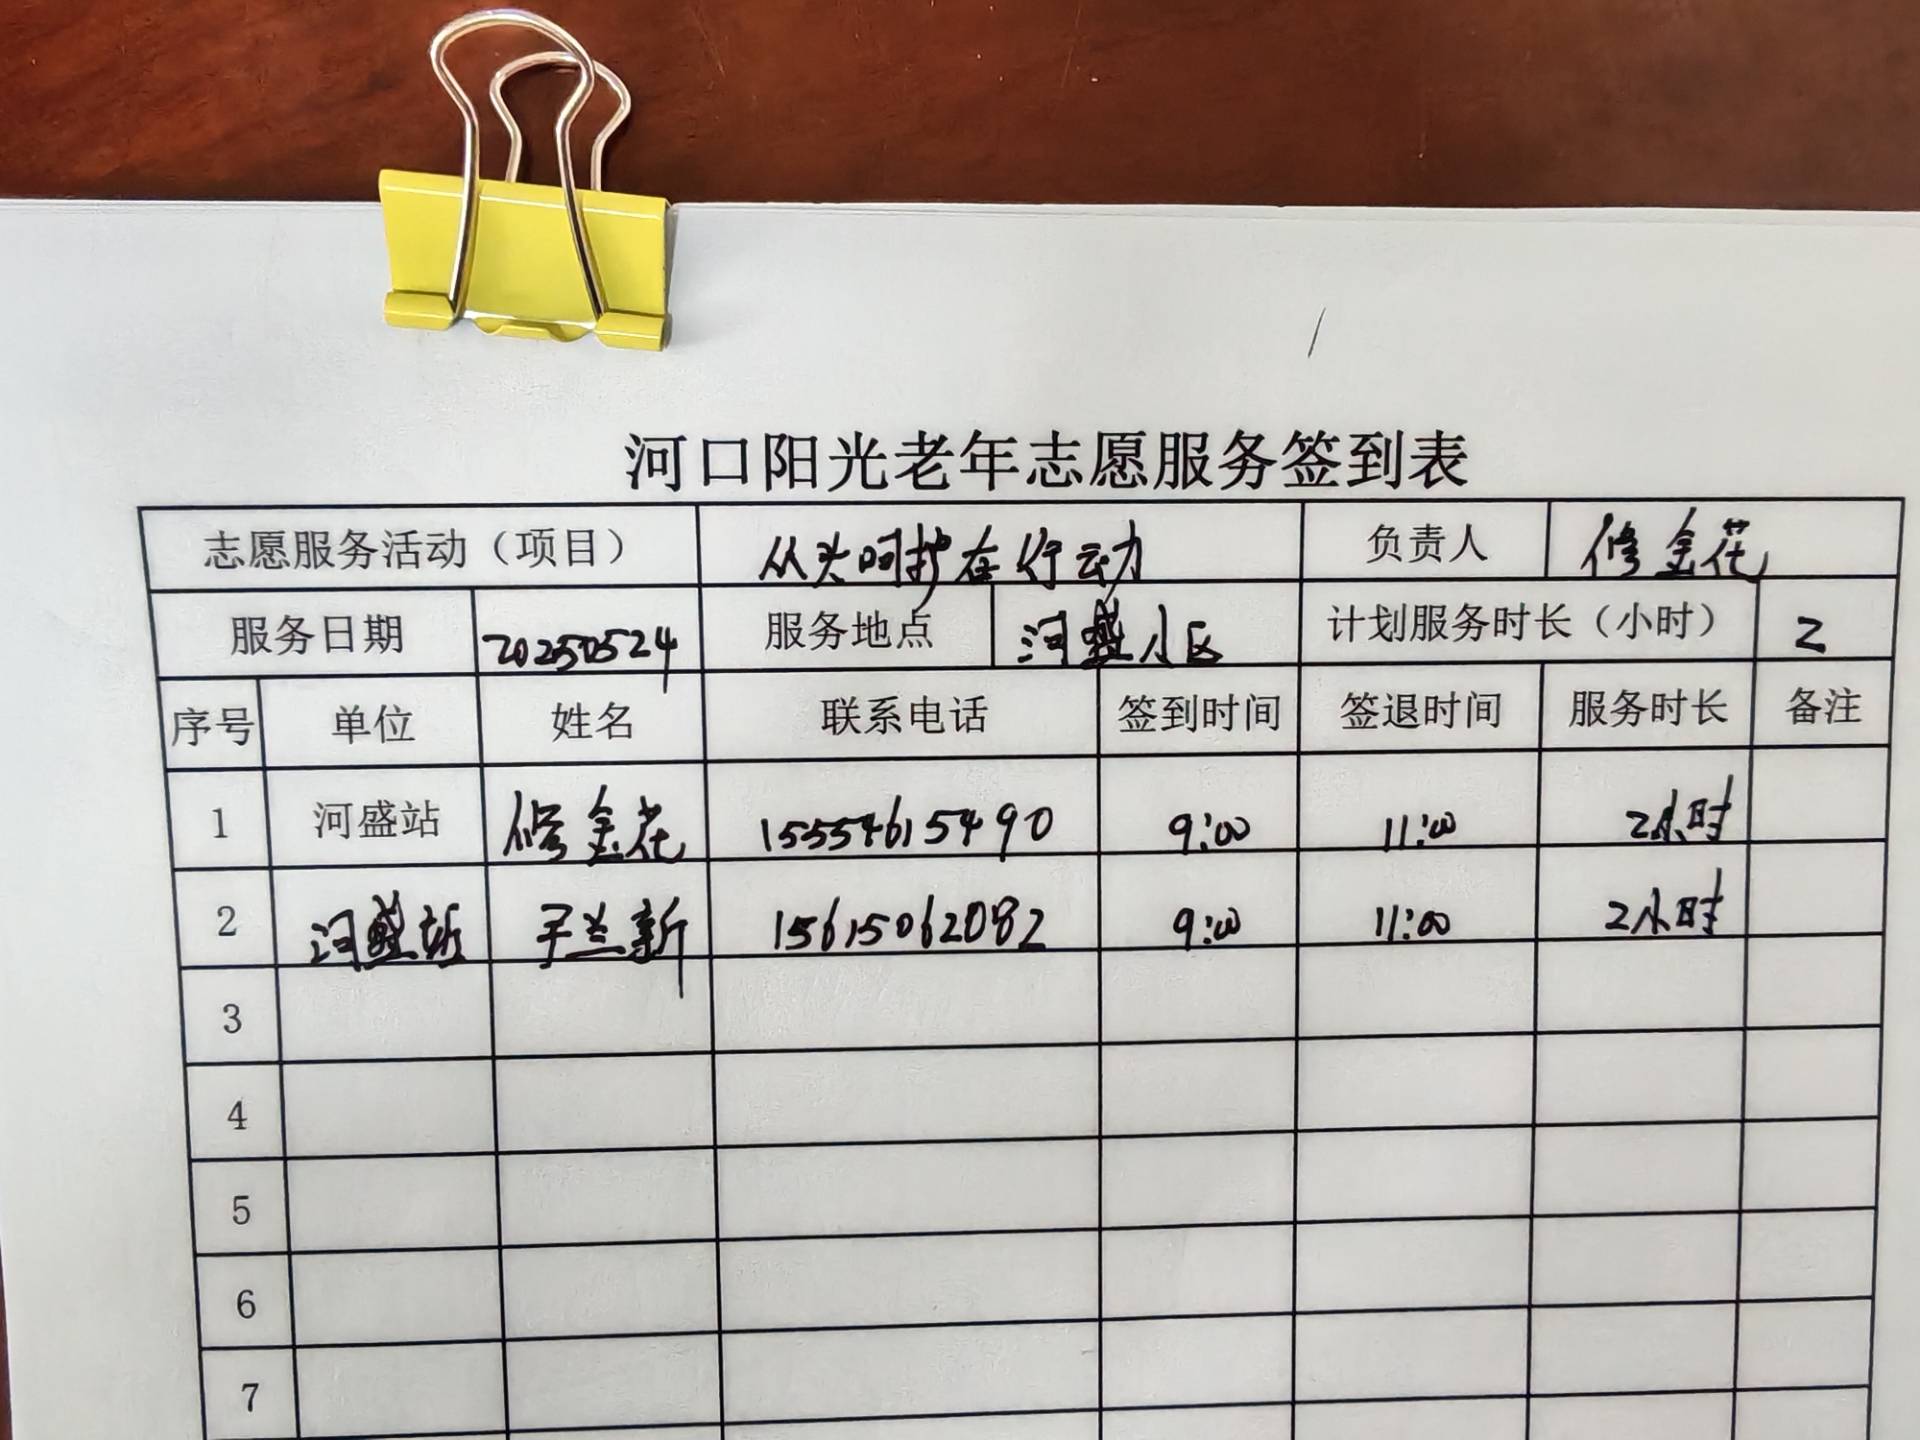 河口阳光老年志愿服务签到表
志愿服务活动（项目） 从头呵护在行动 负责人 修金花
服务日期 20250524 服务地点 河盛小区 计划服务时长（小时） 2
序号 单位 姓名 联系电话 签到时间 签退时间 服务时长 备注
1 河盛站 修金花 15554615490 9:00 11:00 2小时
2 河盛站 于兰新 15615062082 9:00 11:00 2小时
3
4
5
6
7